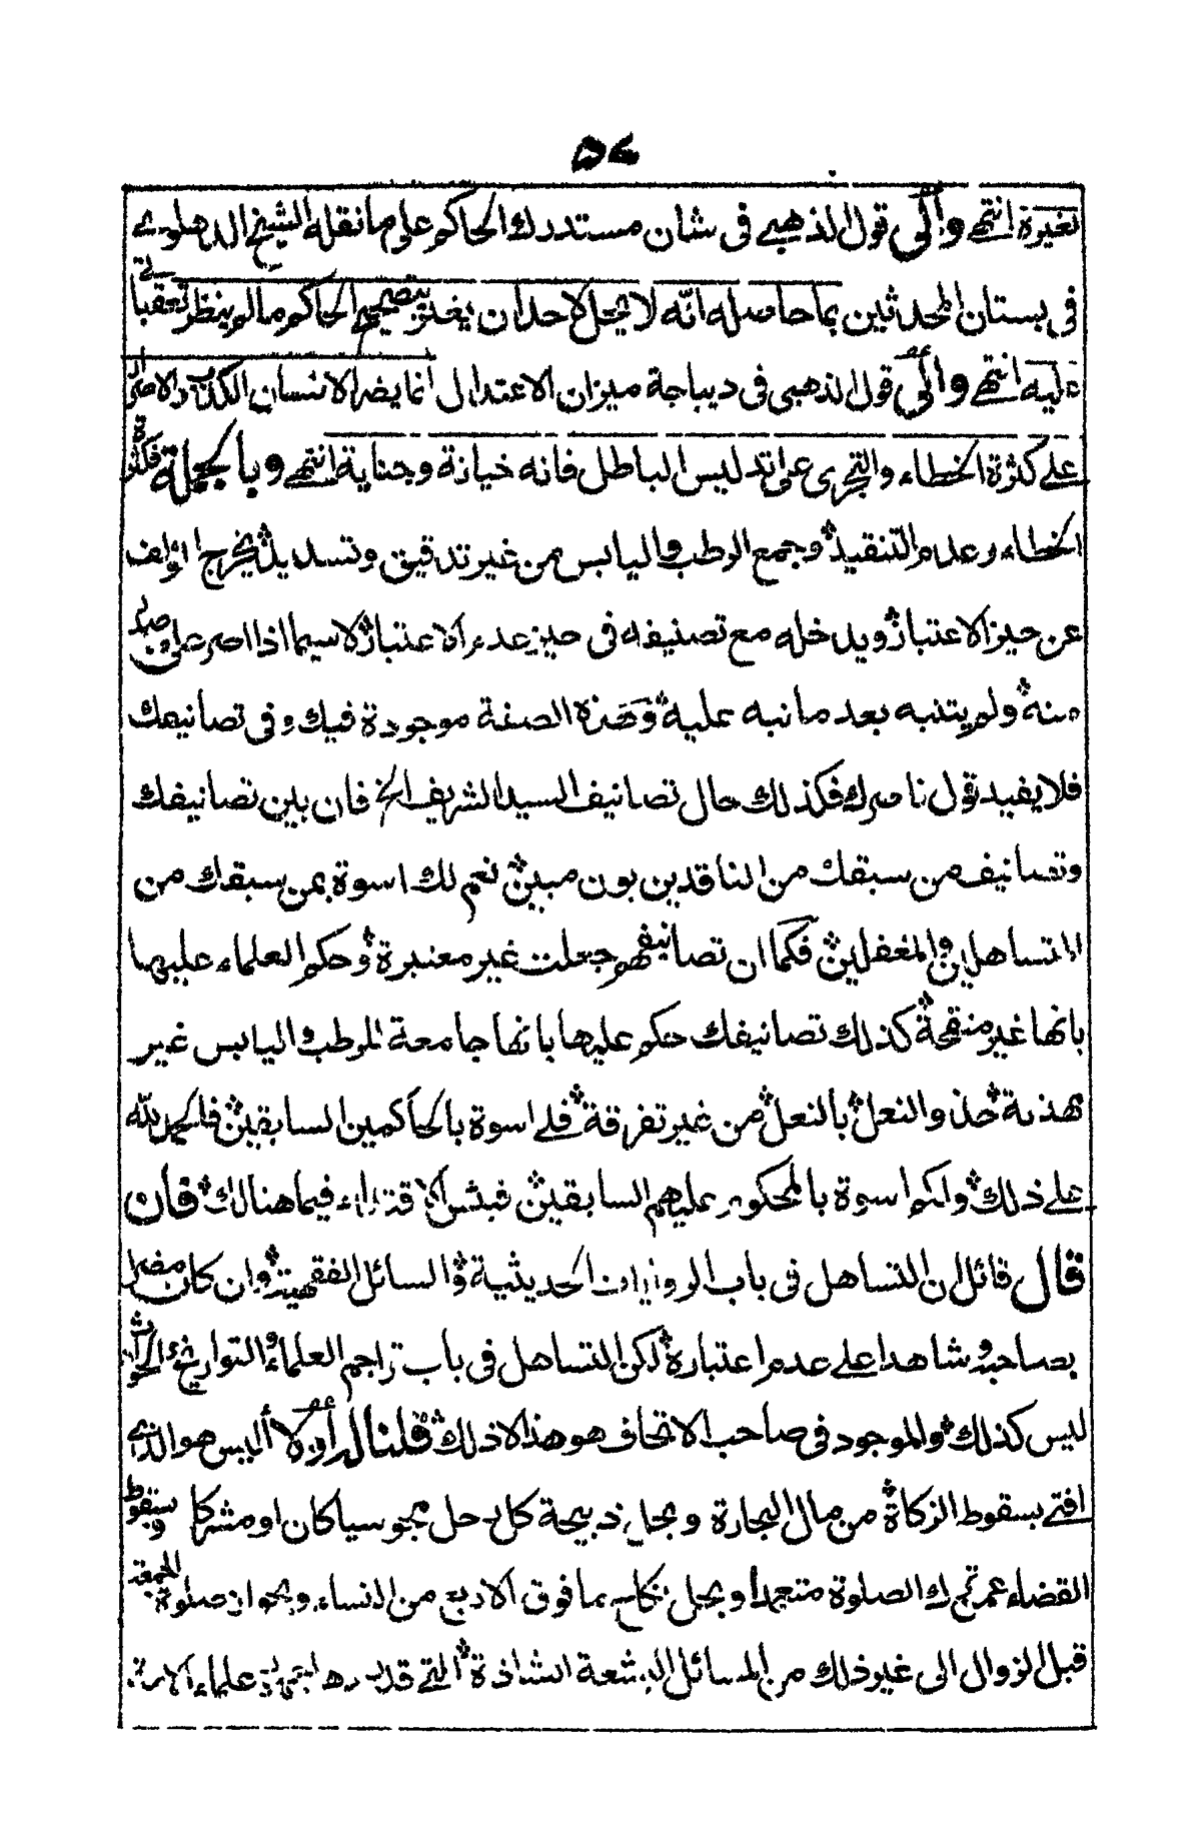 ٥٧
بغيرة انتهى والى قول الذهبي فى شان مستدرك الحاكم على ما نقله الشيخ الدهلوى
فى بستان المحدثين بما حاصله انه لا يحل لاحد ان يغتر بتصحيح الحاكم ما لم ينظر تعقباتى
عليه انتهى والى قول الذهبى فى ديباجة ميزان الاعتدال انما يضر الانسان الكذب والاصرار
على كثرة الخطاء والتجرى على تدليس الباطل فانه خيانة وجناية انتهى وبالجملة فكثرة
الخطاء وعدم التنقيد وجمع الرطب واليابس من غير تدقيق وتسديد يخرج المؤلف
عن حيز الاعتبار ويدخله مع تصنيفه فى حيز عدم الاعتبار لاسيما اذا اصر على ما صدر
منه ولم يتنبه بعد ما نبه عليه وهذه الصفة موجودة فيك وفى تصانيفك
فلا يفيد قول ناصرك فكذلك حال تصانيف السيد الشريف الخ فان بين تصانيفك
وتصانيف من سبقك من الناقدين بون مبين نعم لك اسوة بمن سبقك من
المتساهلين والمغفلين فكما ان تصانيفهم جعلت غير معتبرة وحكم العلماء عليها
بانها غير منقحة كذلك تصانيفك حكم عليها بانها جامعة للرطب واليابس غير
مهذبة حذو النعل بالنعل من غير تفرقة فلى اسوة بالحاكمين السابقين فالحمد لله
على ذلك ولكم اسوة بالمحكوم عليهم السابقين فبئس الاقتداء فيما هنالك فان
قال قائل ان التساهل فى باب الروايات الحديثية والسائل الفقهية وان كان مضرا
بصاحبه وشاهدا على عدم اعتباره لكن التساهل فى باب تراجم العلماء والتواريخ والحوادث
ليس كذلك والموجود فى صاحب الاتحاف هو هذا لا ذلك قلنا له اولا أليس هو الذى
افتى بسقوط الزكاة من مال التجارة وبحل ذبيحة كل رجل مجوسيا كان او مشركا وسقوط
القضاء عمن ترك الصلوة متعمدا وبحل نكاح ما فوق الاربع من النساء وبجواز صلوة الجمعة
قبل الزوال الى غير ذلك من المسائل البشعة الشاذة التى قد ردها علماء الامة